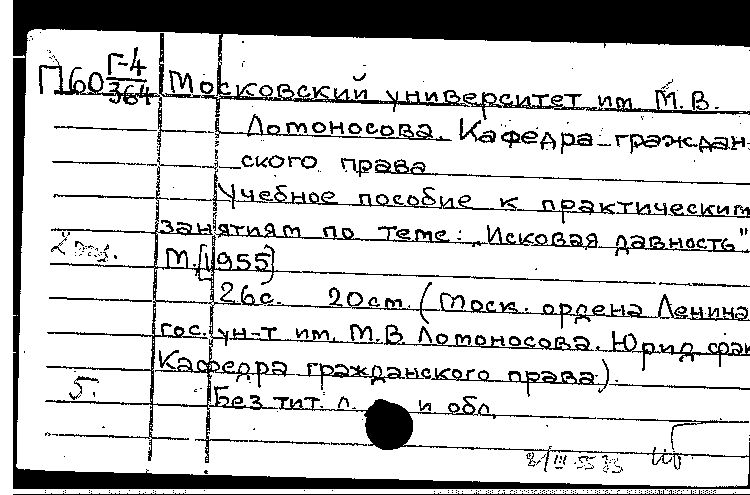 П60 Г-4/364 Московский университет им. М.В.
Ломоносова. Кафедра граждан-
ского права
Учебное пособие к практическим
занятиям по теме: „Исковая давность".
2 экз. М. [1955]
26с. 20см. (Моск. ордена Ленина
гос. ун-т им. М.В Ломоносова. Юрид фак
Кафедра гражданского права).
5. Без тит. л. и обл.